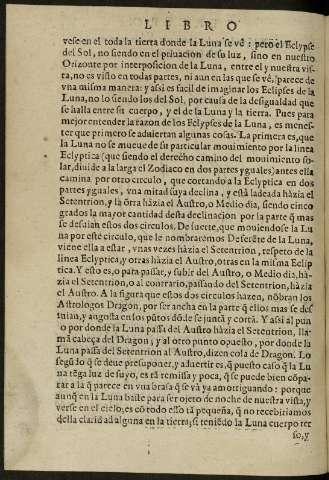 LIBRO
vese en el toda la tierra donde la Luna se vè: pero el Eclypse
del Sol, no siendo en el priuacion de su luz, sino en nuestro
Orizonte por interposicion de la Luna, entre el y nuestra vis-
ta, no es visto en todas partes, ni aun en las que se vè, parece de
vna misma manera: y assi es facil de imaginar los Eclipses de la
Luna, no lo siendo los del Sol, por causa de la desigualdad que
se halla entre su cuerpo, y el de la Luna y la tierra. Pues para
mejor entender la razon de los Eclypses de la Luna, es menes-
ter que primero se aduiertan algunas cosas. La primera es, que
la Luna no se mueue de su particular mouimiento por la linea
Eclyptica (que siendo el derecho camino del mouimiento so-
lar, diuide a la larga el Zodiaco en dos partes yguales) antes ella
camina por otro circulo, que cortando a la Eclyptica en dos
partes yguales, vna mitad suya declina, y està ladeada hàzia el
Setentrion, y la õtra hàzia el Austro, o Medio dia, siendo cinco
grados la mayor cantidad desta declinacion por la parte q̃ mas
se desuian estos dos circulos. De suerte, que mouiendose la Lu
na por este circulo, que le nombraremos Deferẽte de la Luna,
viene ella a estar, vnas vezes hàzia el Setentrion, respeto de la
linea Eclyptica, y otras hàzia el Austro, otras en la misma Eclip
tica. Y esto es, o para passar, y subir del Austro, o Medio dia, hà-
zia el Setentrion, o al contrario, passando del Setentrion, hàzia
el Austro. A la figura que estos dos circulos hazen, nõbran los
Astrologos Dragon, por ser ancha en la parte q̃ ellos mas se des
uian, y angusta en los pũtos dõde se juntã y cortã. Y assi al pun
o por donde la Luna passa del Austro hàzia el Setentrion, lla-
mã cabeça del Dragon; y al otro punto opuesto, por donde la
Luna passa del Setentrion al Austro, dizen cola de Dragon. Lo
segũdo q̃ se deue presuponer, y aduertir es, q̃ puesto caso q̃ la Lu
na tẽga luz de suyo, es tã remissa y poca, q̃ se puede bien cõpa-
rar a la q̃ parece en vna brasa q̃ se và ya amortiguando: porque
aunq̃ en la Luna baste para ser ojeto de noche de nuestra vista, y
verse en el cielo, es cõ todo esso tã pequeña, q̃ no recebiriamos
della claridad alguna en la tierra; si teniẽdo la Luna cuerpo ter
so, y